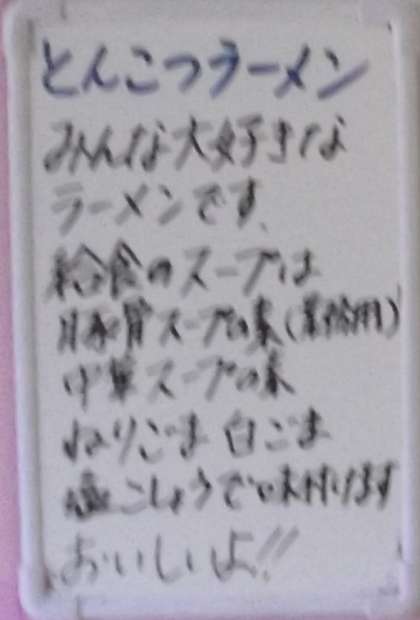 とんこつラーメン
みんな大好きな
ラーメンです、
給食のスープは
豚骨スープの素(業務用)
中華スープの素
ねりごま 白ごま
塩こしょうで味付けます
おいしいよ!!